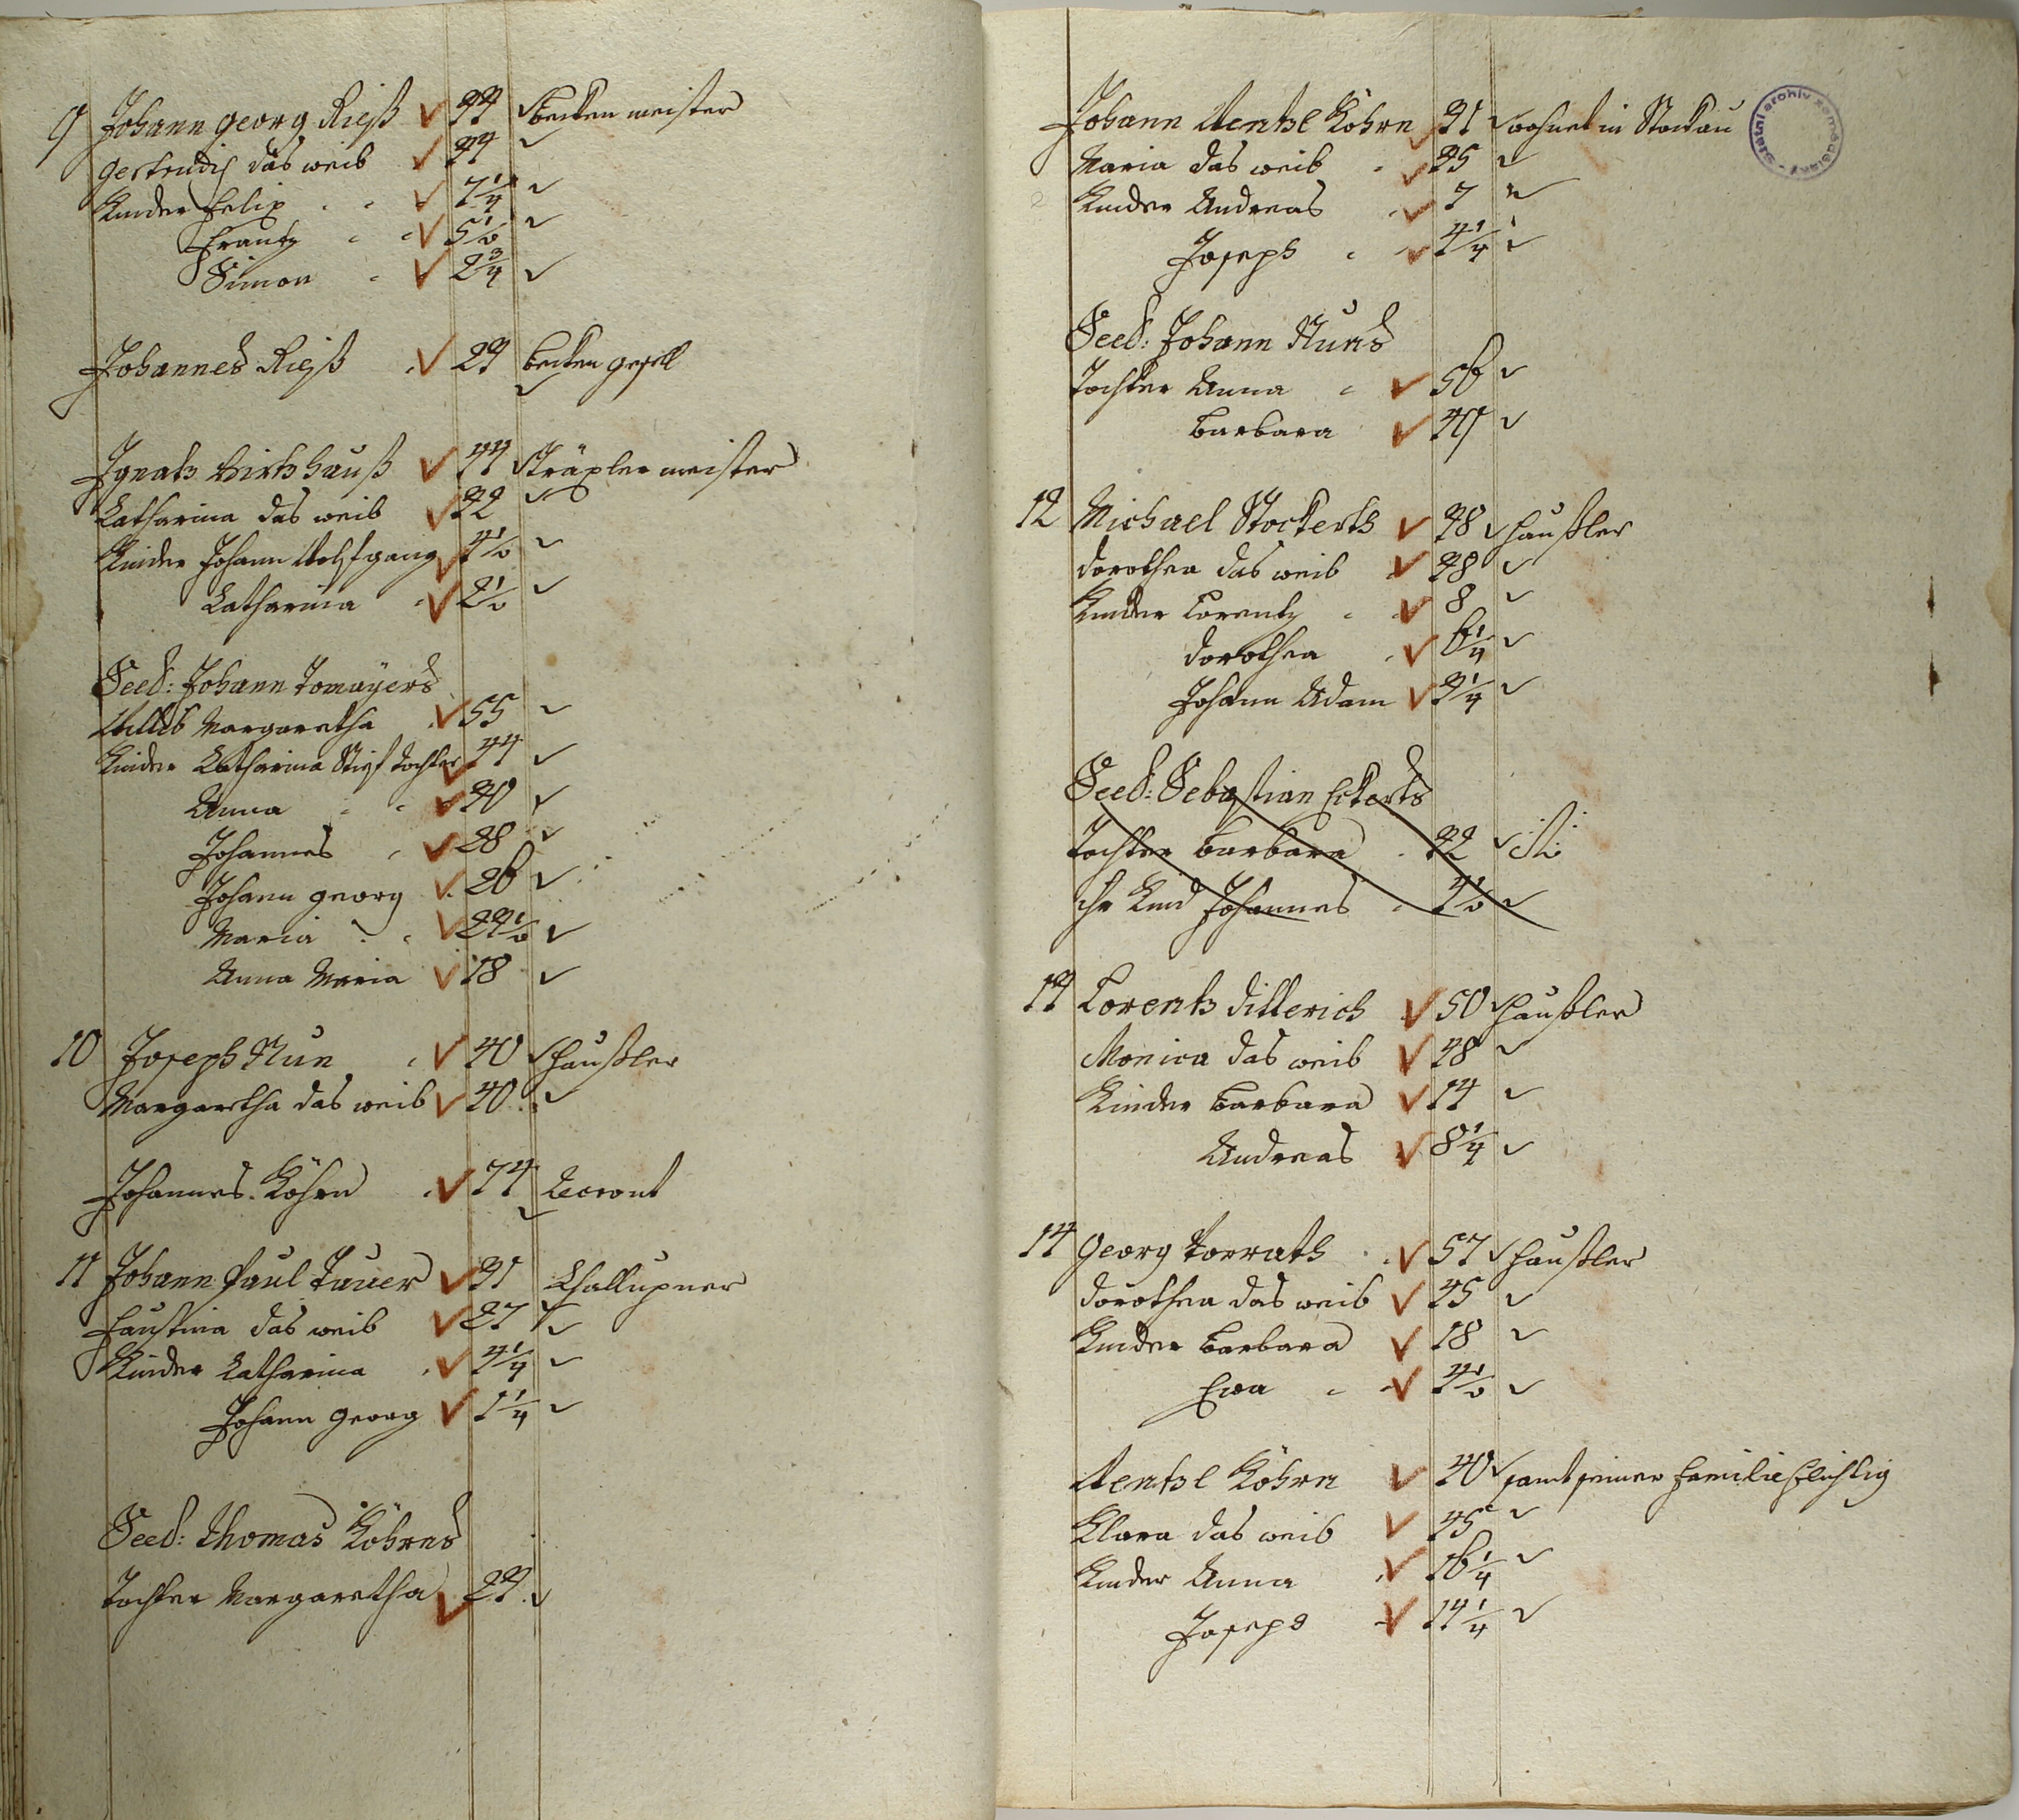 9 Johann georg Riehß 33 Becken meister
gertrudis das weib 33
Kinder Felix 7 1/4
Frantz 5 1/2
Simon 2 3/4
Johannes Riehß 23 Becken gesell
Ignatz Hirtshauß 44 Träxler meister
Catharina das weib 32
Kinder Johann Wolfgang 4 1/2
Catharina 2 1/2
Seel: Johann Tomayers
Wittib Margaretha 55
Kinder Catharina Stief Tochter 44
Anna 30
Johannes 28
Johann georg 26
Maria 23 1/2
Anna Maria 18
10 Joseph Nun 40 Haußler
Margaretha das weib 40
Johannes Köhrn 74
11 Johann Paul Tauer 31 Challupner
Faustina das weib 27
Kinder Catharina 4 1/4
Johann georg 1 1/4
Seel: Thomas Köhrns
Tochter Margaretha 23
Johann Wentzl Köhrn 31 wohnet in Stockau
Maria das weib 35
Kinder Andreas 7
Joseph 4 1/4
Seel: Johann Nuns
Tochter Anna 56
Barbara 49
12 Michael Stockerth 38 Haußler
Dorothea das weib 38
Kinder Lorentz 8
Dorothea 6 1/4
Johann Adam 3 1/4
Seel: Sebastian Eckerts
Tochter Barbara 32
ihr Kind Johannes 4 1/2
13 Lorentz Ditterich 50 Haußler
Monica das weib 38
Kinder Barbara 14
Andreas 8 1/4
14 georg Torrath 57 Haußler
Dorothea das weib 45
Kinder Barbara 18
Eva 4 1/2
Wentzl Köhrn 40 samt seiner Familie flichtig
Klara das weib 45
Kinder Anna 16 1/4
Joseph 14 1/4
Státní archiv zemědělský